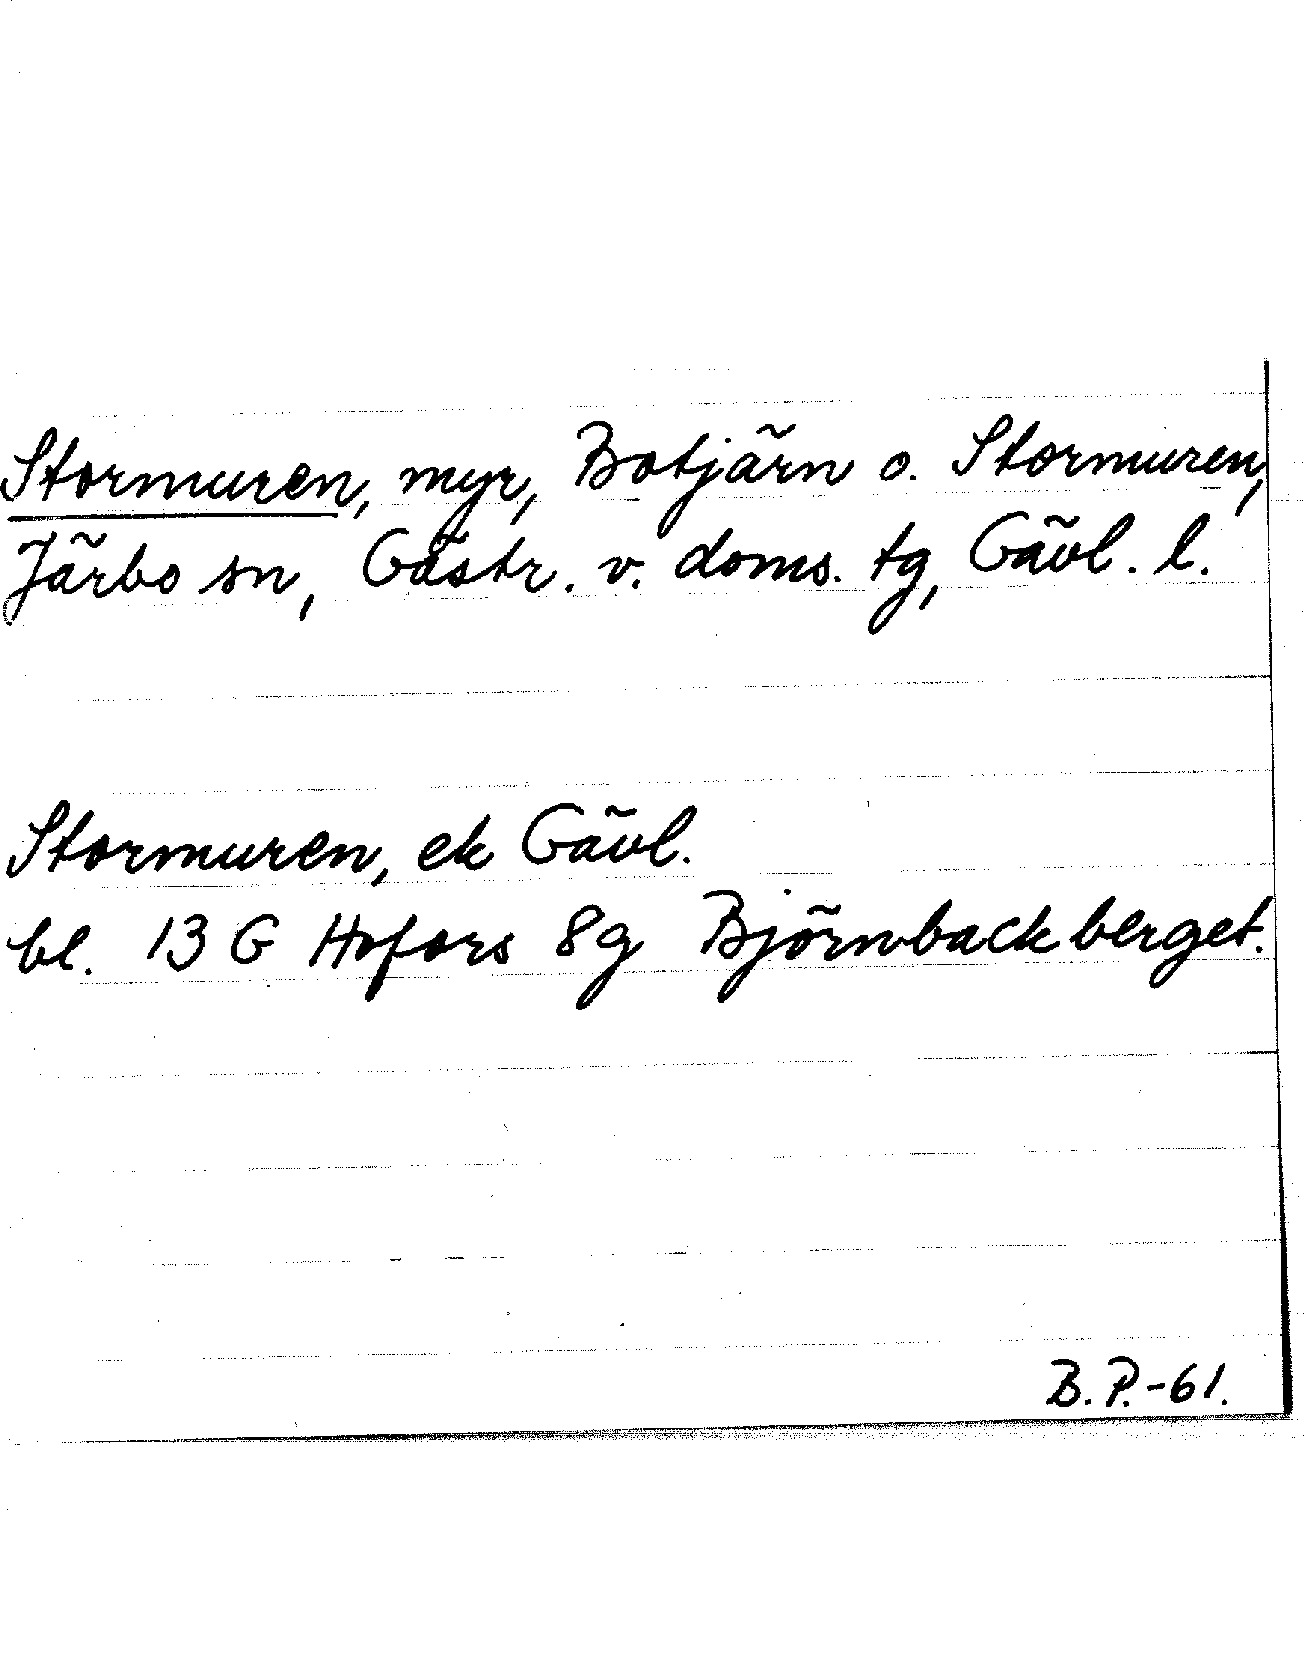 Stormuren, myr, Botjärn o. Stormuren,
Järbo sn, Gästr. v. doms. tg, Gävl. l.
Stormuren, ek Gävl.
bl. 13 G Hofors 8g Björnbackberget.
B.P.-61.